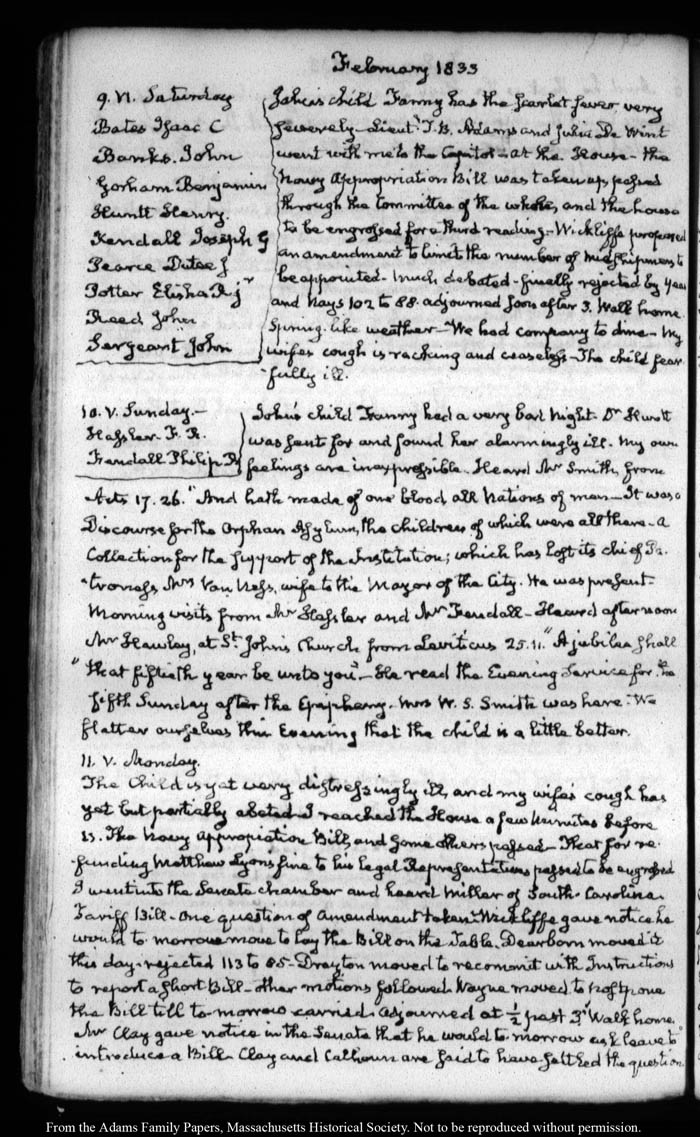 February 1833
9. VI. Saturday
Bates Isaac C
Banks. John
Gorham Benjamin
Huntt Henry.
Kendall Joseph G
Pearce Dutee J
Potter Elisha R. jr
Reed John
Sergeant John
John's child Fanny has the scarlet fever very
severely – Lieutt. T. B. Adams and Julia De Wint
went with me to the Capitol – at the House – the
Navy Appropriation Bill was taken up, passed
through the Committee of the whole, and the house
to be engrossed for a third reading – Wickliffe proposed
an amendment to limit the number of Midshipmen to
be appointed – much debated – finally rejected by yeas
and nays 102 to 88. adjourned soon after 3. Walk home
Spring-like weather – We had company to dine – My
wife's cough is racking and ceaseless – The child fear-
-fully ill.
10. V. Sunday. –
Hassler. F. R.
Fendall Philip R
John's child Fanny had a very bad Night. Dr Huntt
was sent for and found her alarmingly ill. My own
feelings are inexpressible. Heard Mr Smith, from
Acts 17. 26. "And hath made of one blood all Nations of men – It was a
Discourse for the Orphan Asylum, the children of which were all there – a
Collection for the support of the Institution; which has lost its chief Pa-
-troness, Mrs Van Ness, wife to the Mayor of the City. He was present.
Morning visits from Mr Hassler and Mr Fendall – Heard afternoon
Mr Hawley, at St. John's Church from Leviticus 25. 11. "A jubilee shall
"that fiftieth year be unto you" – He read the Evening Service for the
fifth Sunday after the Epiphany. Mrs W. S. Smith was here. We
flatter ourselves this Evening that the child is a little better.
11. V. Monday.
The Child is yet very distressingly ill, and my wife's cough has
yet but partially abated. I reached the House a few minutes before
12. The Navy Appropriation Bill, and some others passed – That for re-
-funding Matthew Lyons fine to his legal Representatives passed to be engrossed
I went into the Senate chamber and heard Miller of South-Carolina.
Tariff Bill – One question of Amendment taken. Wickliffe gave notice he
would to-morrow move to lay the Bill on the Table. Dearborn moved it
this day – rejected 113 to 85 – Drayton moved to recommit with Instructions
to report a short Bill – other motions followed Wayne moved to postpone
the Bill till to-morrow carried. adjourned at ½ past 3. Walk home.
Mr Clay gave notice in the Senate that he would to-morrow ask leave to
introduce a Bill. Clay and Calhoun are said to have settled the question.
From the Adams Family Papers, Massachusetts Historical Society. Not to be reproduced without permission.